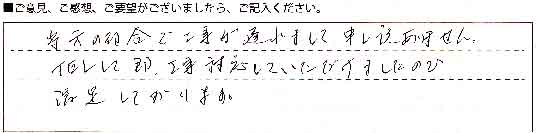 ■ご意見、ご感想、ご要望がございましたら、ご記入ください。
当方の都合で工事が遅れまして申し訳ありません。
但しして即、工事対応していただけましたので
満足しております。